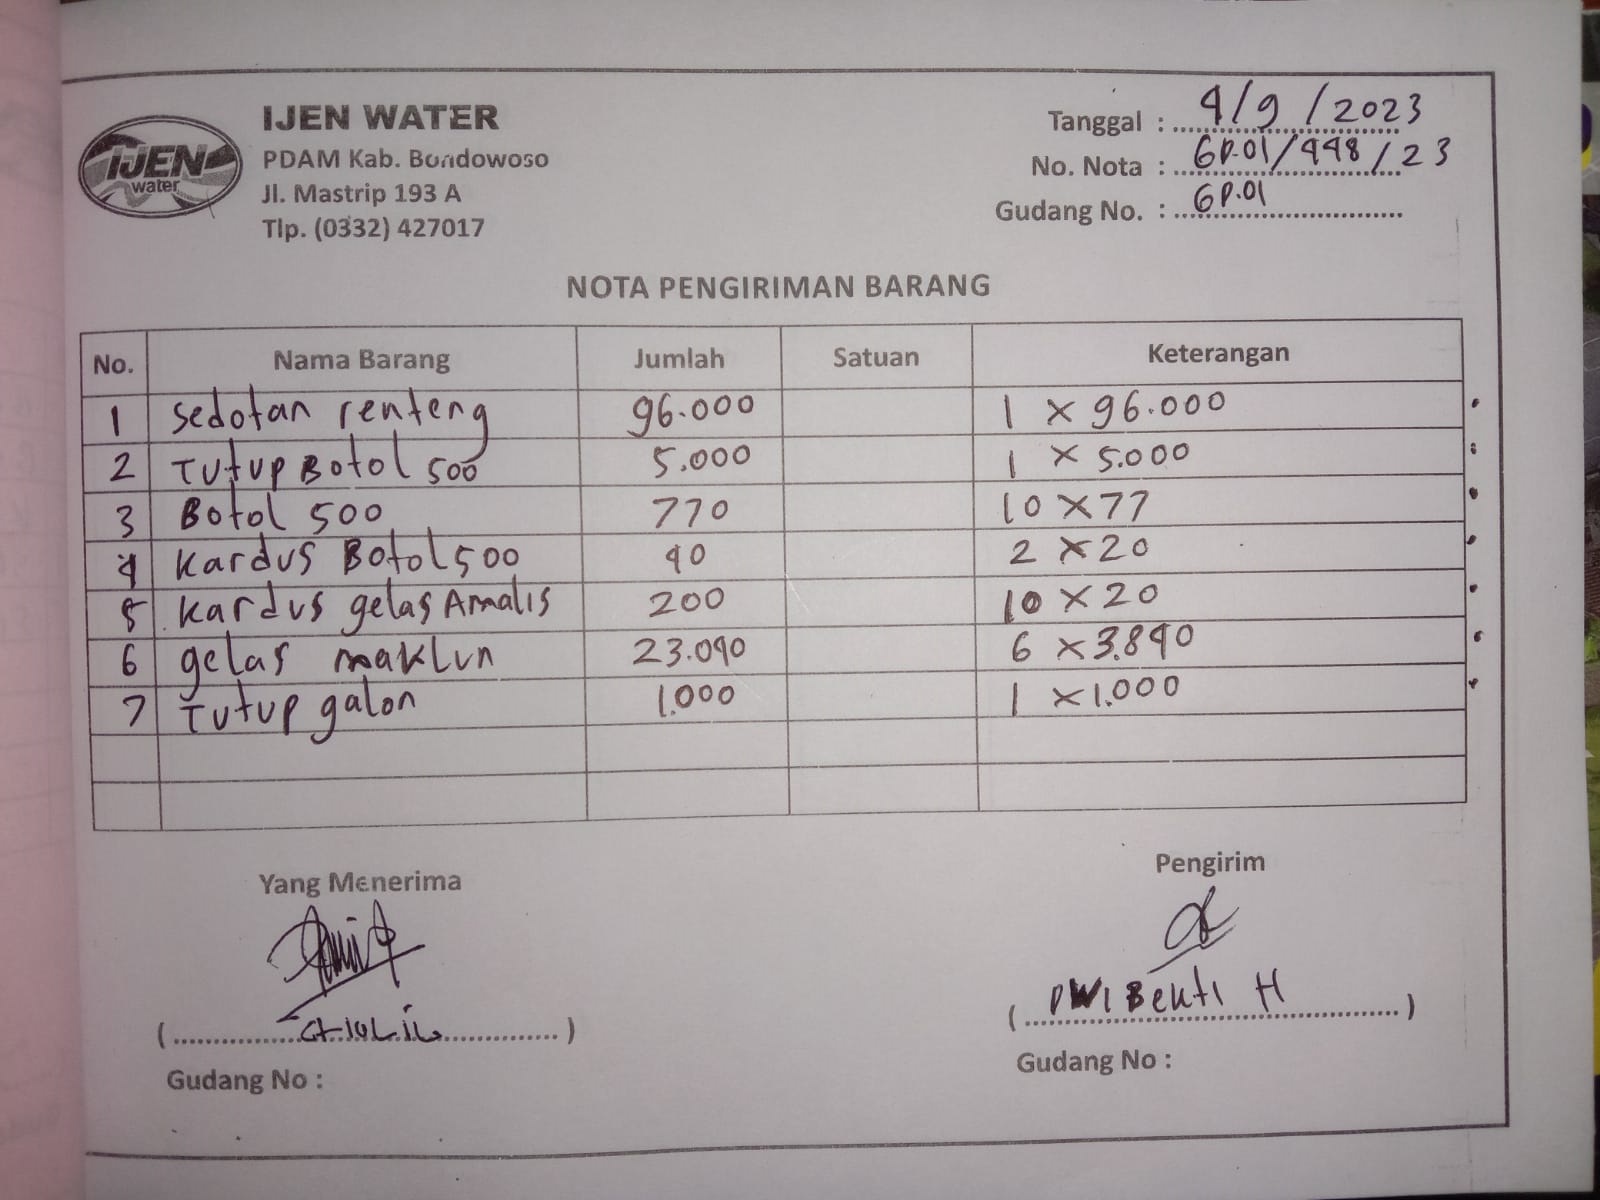 IJEN water
IJEN WATER
PDAM Kab. Bondowoso
Jl. Mastrip 193 A
Tlp. (0332) 427017
Tanggal : 4/9/2023
No. Nota : GP.01/448/23
Gudang No. : GP.01
NOTA PENGIRIMAN BARANG
No. Nama Barang Jumlah Satuan Keterangan
1 Sedotan renteng 96.000 1 x 96.000
2 Tutup Botol 500 5.000 1 x 5.000
3 Botol 500 770 10 x 77
4 Kardus Botol 500 40 2 x 20
5 Kardus gelas Amalis 200 10 x 20
6 gelas maklun 23.040 6 x 3.840
7 Tutup galon 1.000 1 x 1.000
Yang Menerima
Pengirim
(DWI Bekti H)
Gudang No :
Gudang No :